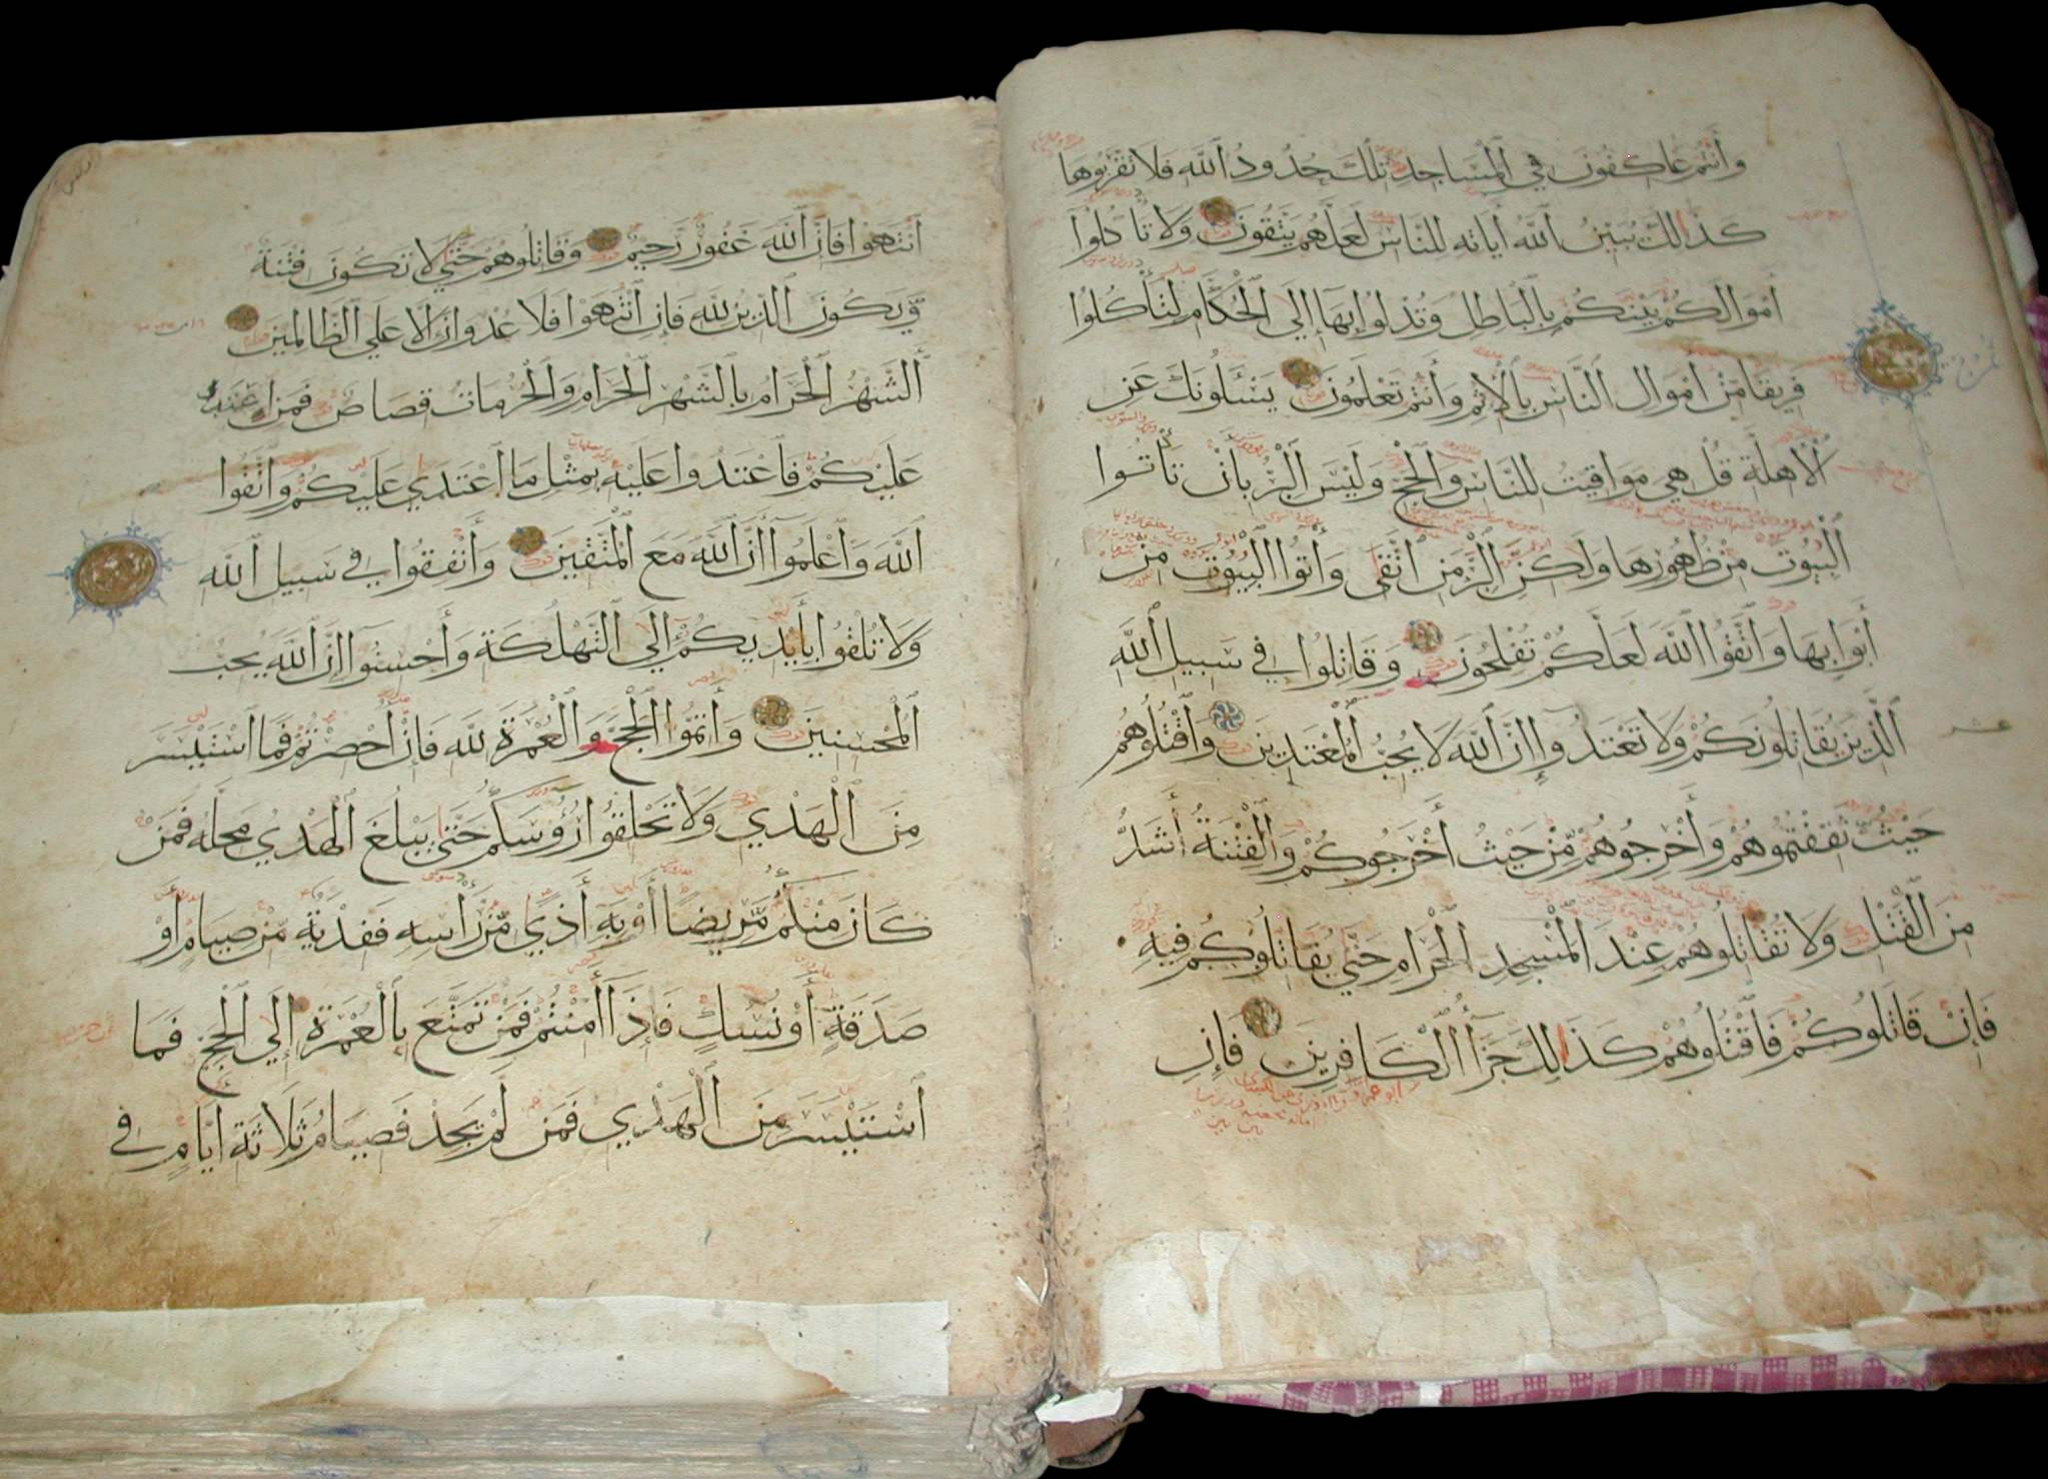 وَأَنْتُمْ عَاكِفُونَ فِي الْمَسَاجِدِ تِلْكَ حُدُودُ اللَّهِ فَلَا تَقْرَبُوهَا
كَذَالِكَ يُبَيِّنُ اللَّهُ أَيَاتِهِ لِلنَّاسِ لَعَلَّهُمْ يَتَّقُونَ وَلَا تَأْكُلُوا
أَمْوَالَكُمْ بَيْنَكُمْ بِالْبَاطِلِ وَتُدْلُوا بِهَا إِلَى الْحُكَّامِ لِتَأْكُلُوا
فَرِيقًا مِّنْ أَمْوَالِ النَّاسِ بِالْإِثْمِ وَأَنْتُمْ تَعْلَمُونَ يَسْئَلُونَكَ عَنِ
الْأَهِلَّةِ قُلْ هِيَ مَوَاقِيتُ لِلنَّاسِ وَالْحَجِّ وَلَيْسَ الْبِرُّ بِأَنْ تَأْتُوا
الْبُيُوتَ مِنْ ظُهُورِهَا وَلَكِنَّ الْبِرَّ مَنِ اتَّقَى وَأْتُوا الْبُيُوتَ مِنْ
أَبْوَابِهَا وَاتَّقُوا اللَّهَ لَعَلَّكُمْ تُفْلِحُونَ وَقَاتِلُوا فِي سَبِيلِ اللَّهِ
الَّذِينَ يُقَاتِلُونَكُمْ وَلَا تَعْتَدُوا إِنَّ اللَّهَ لَا يُحِبُّ الْمُعْتَدِينَ وَاقْتُلُوهُمْ
حَيْثُ ثَقِفْتُمُوهُمْ وَأَخْرِجُوهُمْ مِّنْ حَيْثُ أَخْرَجُوكُمْ وَالْفِتْنَةُ أَشَدُّ
مِنَ الْقَتْلِ وَلَا تُقَاتِلُوهُمْ عِنْدَ الْمَسْجِدِ الْحَرَامِ حَتَّى يُقَاتِلُوكُمْ فِيهِ
فَإِنْ قَاتَلُوكُمْ فَاقْتُلُوهُمْ كَذَالِكَ جَزَآءُ الْكَافِرِينَ فَإِنِ
انْتَهَوْا فَإِنَّ اللَّهَ غَفُورٌ رَّحِيمٌ وَقَاتِلُوهُمْ حَتَّى لَا تَكُونَ فِتْنَةٌ
وَّيَكُونَ الدِّينُ لِلَّهِ فَإِنِ انْتَهَوْا فَلَا عُدْوَانَ إِلَّا عَلَى الظَّالِمِينَ
الشَّهْرُ الْحَرَامُ بِالشَّهْرِ الْحَرَامِ وَالْحُرُمَاتُ قِصَاصٌ فَمَنِ اعْتَدَى
عَلَيْكُمْ فَاعْتَدُوا عَلَيْهِ بِمِثْلِ مَا اعْتَدَى عَلَيْكُمْ وَاتَّقُوا
اللَّهَ وَاعْلَمُوا أَنَّ اللَّهَ مَعَ الْمُتَّقِينَ وَأَنْفِقُوا فِي سَبِيلِ اللَّهِ
وَلَا تُلْقُوا بِأَيْدِيكُمْ إِلَى التَّهْلُكَةِ وَأَحْسِنُوا إِنَّ اللَّهَ يُحِبُّ
الْمُحْسِنِينَ وَأَتِمُّوا الْحَجَّ وَالْعُمْرَةَ لِلَّهِ فَإِنْ أُحْصِرْتُمْ فَمَا اسْتَيْسَرَ
مِنَ الْهَدْيِ وَلَا تَحْلِقُوا رُؤُسَكُمْ حَتَّى يَبْلُغَ الْهَدْيُ مَحِلَّهُ فَمَنْ
كَانَ مِنْكُمْ مَّرِيضًا أَوْ بِهِ أَذًى مِّنْ رَّأْسِهِ فَفِدْيَةٌ مِّنْ صِيَامٍ أَوْ
صَدَقَةٍ أَوْ نُسُكٍ فَإِذَا أَمِنْتُمْ فَمَنْ تَمَتَّعَ بِالْعُمْرَةِ إِلَى الْحَجِّ فَمَا
اسْتَيْسَرَ مِنَ الْهَدْيِ فَمَنْ لَمْ يَجِدْ فَصِيَامُ ثَلَاثَةِ أَيَّامٍ فِي